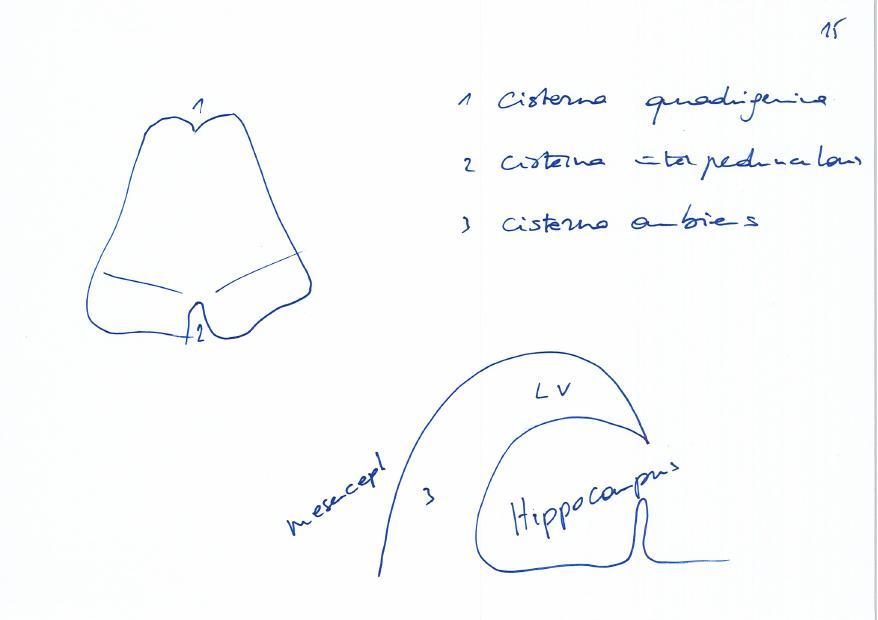 15
1
1 cisterna quadrigemina
2 cisterna interpeduncularis
3 cisterna ambiens
2
LV
mesencepl
3
Hippocampus